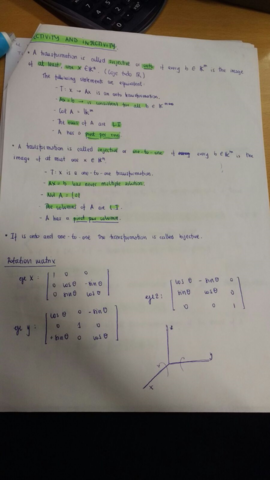 • A transformation is called surjective or onto if every b ∈ ℝᵐ is the image
of at least one x ∈ ℝⁿ
The following statement are equivalent:
- T: x → Ax is an onto transformation.
- Ax = b is consistent for all b ∈ ℝᵐ
- Col A = ℝᵐ
- The rows of A are L.I
- A has a pivot per row.
• A transformation is called injective or one-to-one if every b ∈ ℝᵐ is the
image of at most one x ∈ ℝⁿ.
- T: x is a one-to-one transformation.
- Ax = b has never multiple solution.
- Nul A = {0}
- The columns of A are L.I.
- A has a pivot per column.
• If is onto and one-to-one the transformation is called bijective.
Rotation matrix
eje x: [1 0 0
0 cos θ -sin θ
0 sin θ cos θ]
eje z: [cos θ -sin θ 0
sin θ cos θ 0
0 0 1]
eje y: [cos θ 0 -sin θ
0 1 0
sin θ 0 cos θ]
x